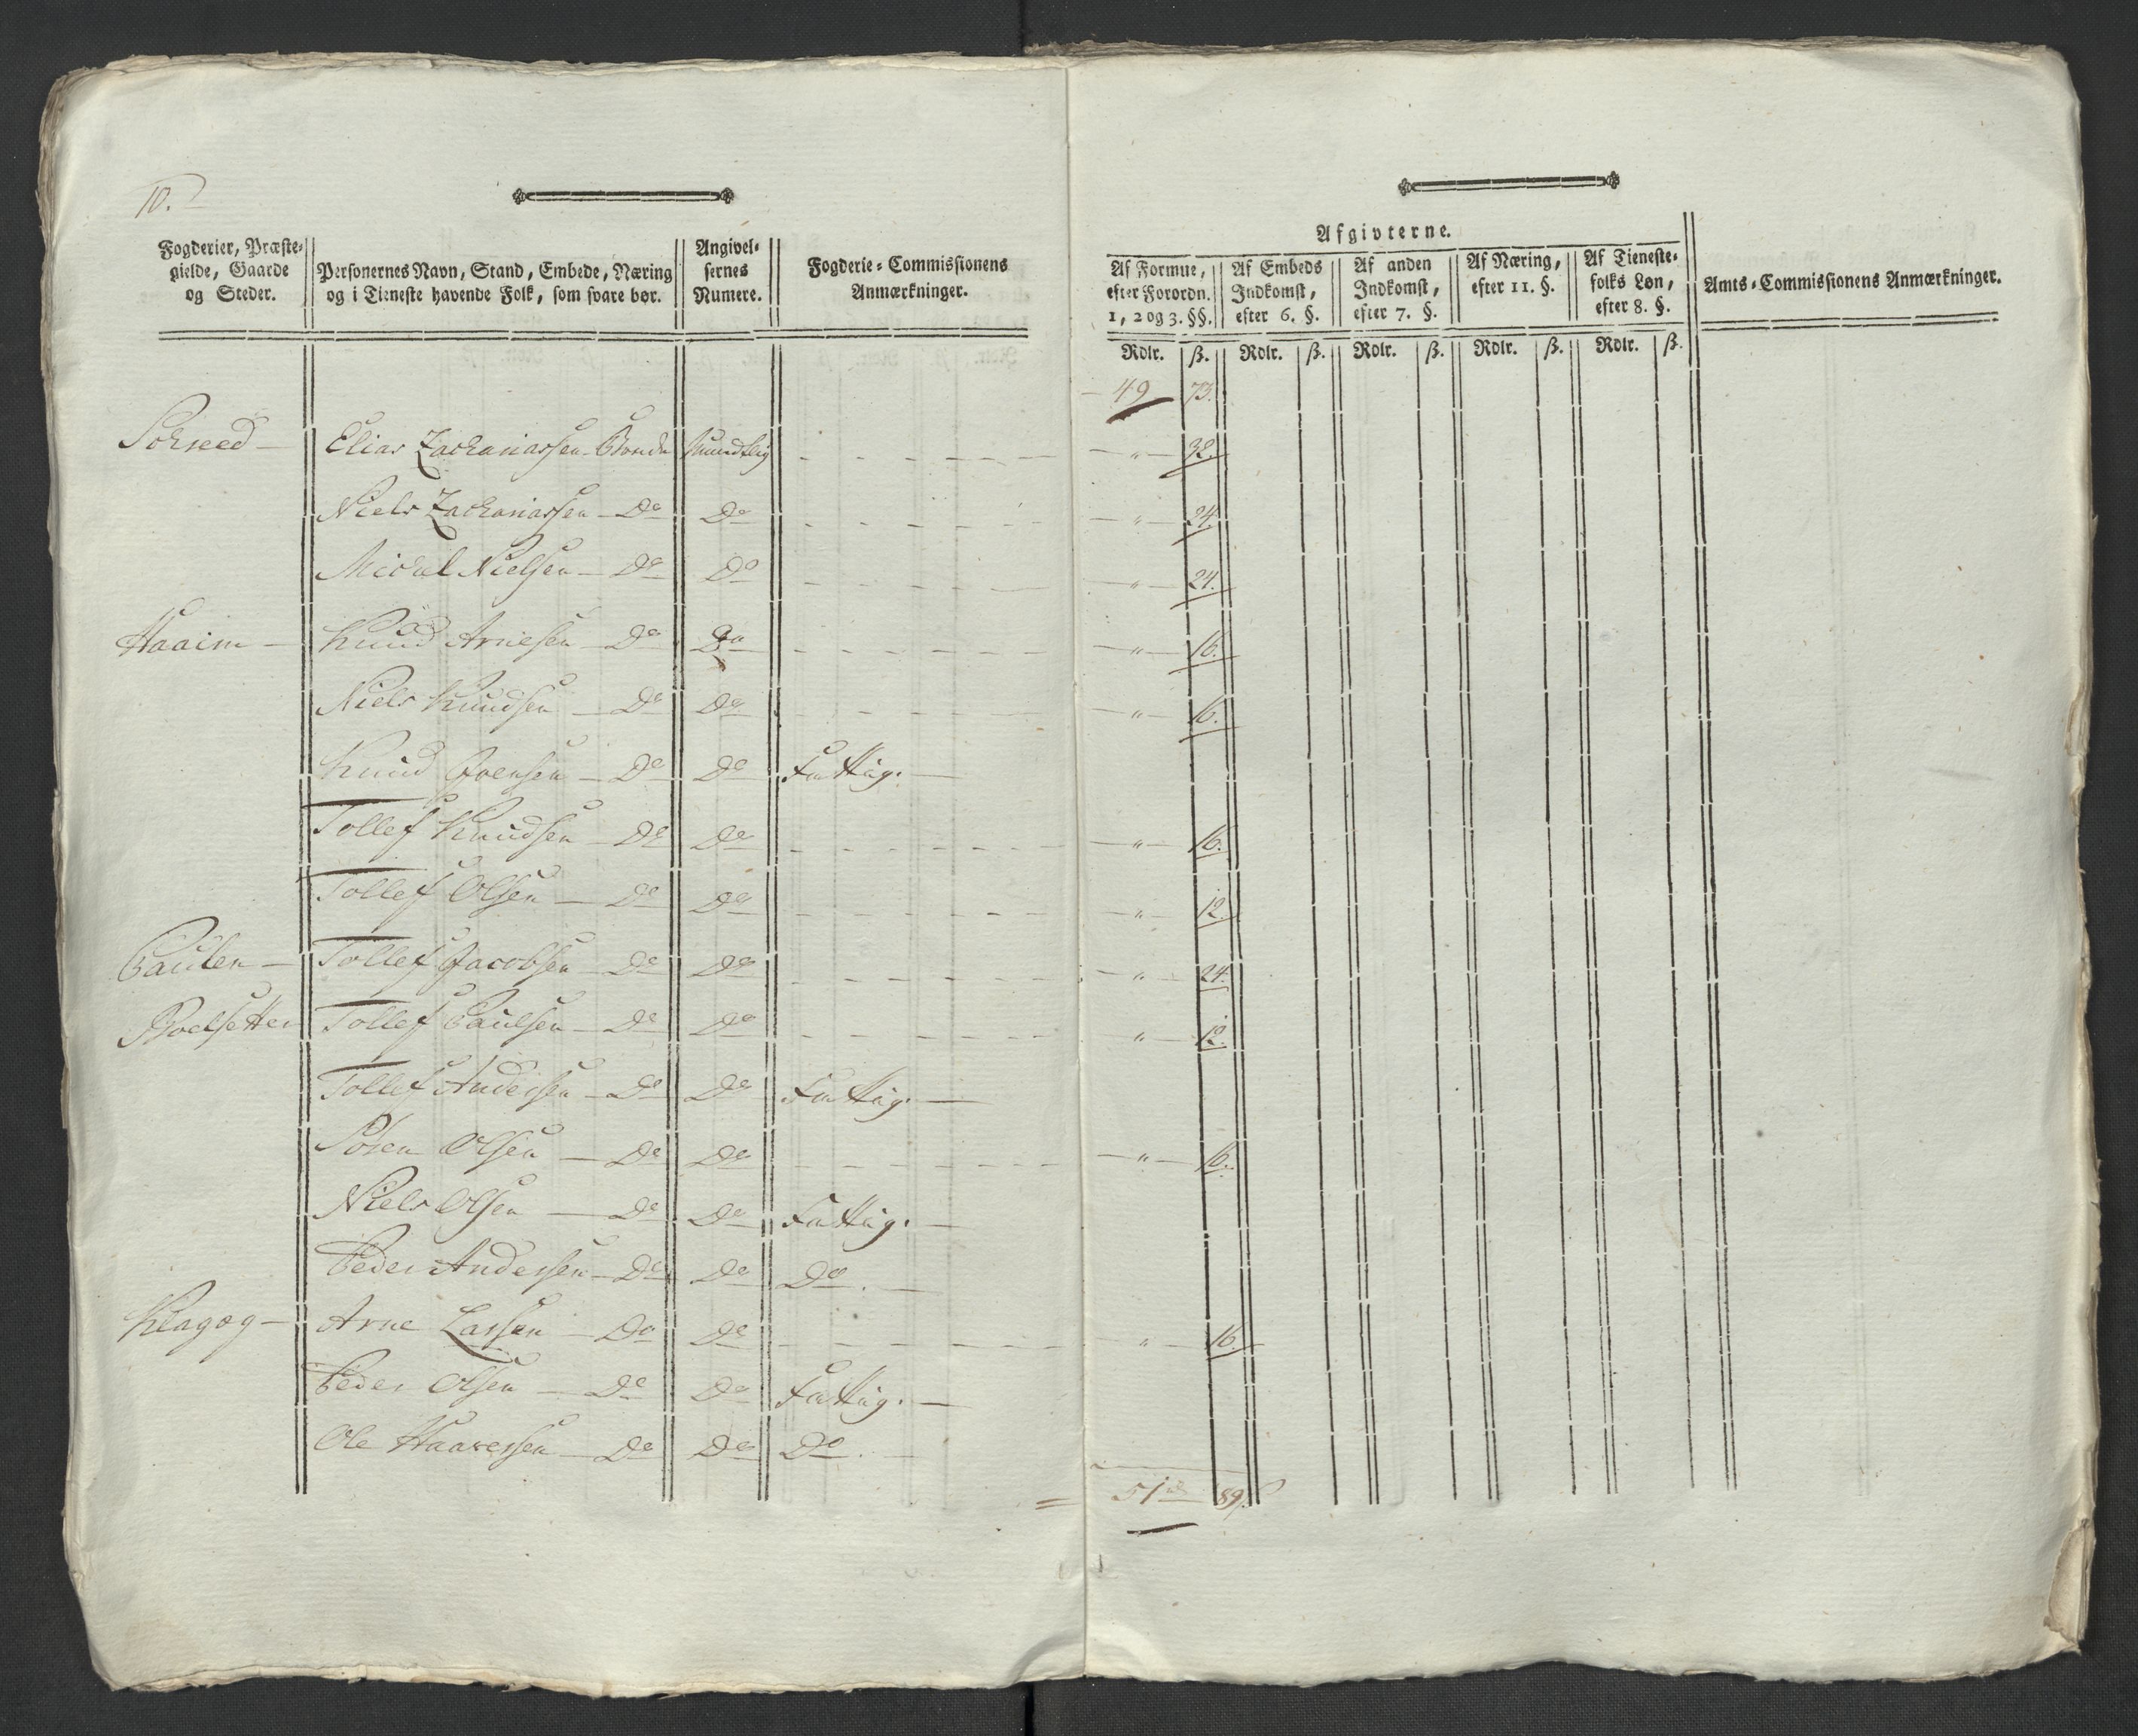 10.
Fogderier, Præste-
gielde, Gaarde
og Steder.
Personernes Navn, Stand, Embede, Næring
og i Tieneste havende Folk, som svare bør.
Angivel-
sernes
Numere.
Fogderie-Commissionens
Anmærkninger.
Afgivterne.
Af Formue,
efter Forordn.
1, 2 og 3. §§.
Af Embeds
Indkomst,
efter 6. §.
Af anden
Indkomst,
efter 7. §.
Af Næring,
efter 11. §.
Af Tieneste-
folks Løn,
efter 8. §.
Amts-Commissionens Anmærkninger.
Rdlr. ß. Rdlr. ß. Rdlr. ß. Rdlr. ß. Rdlr. ß.
49 73.
Elias Zachariassen - Bonde Mundtlig - " - 32.
Niels Zachariassen - Do Do - " - 24.
Michel Nielsen - Do Do - " - 24.
Haaim - Knud Arnesen - Do Do - " - 16.
Niels Knudsen - Do Do - " - 16.
Knud Joensen - Do Do Fattig. -
Tollef Knudsen - Do Do - " - 16.
Tollef Olsen - Do Do - " - 12.
Tollef Jacobsen - Do Do - " - 24.
Tollef Paulsen - Do Do " - 12.
Tollef Andersen - Do Do Fattig. -
Søren Olsen - Do Do - " - 16.
Niels Olsen - Do Do Fattig. -
Peder Andersen - Do Do Do. -
Arne Larsen - Do Do " - 16.
Peder Olsen - Do Do Fattig. -
Ole Haavessen - Do Do Do. -
= 51 89.